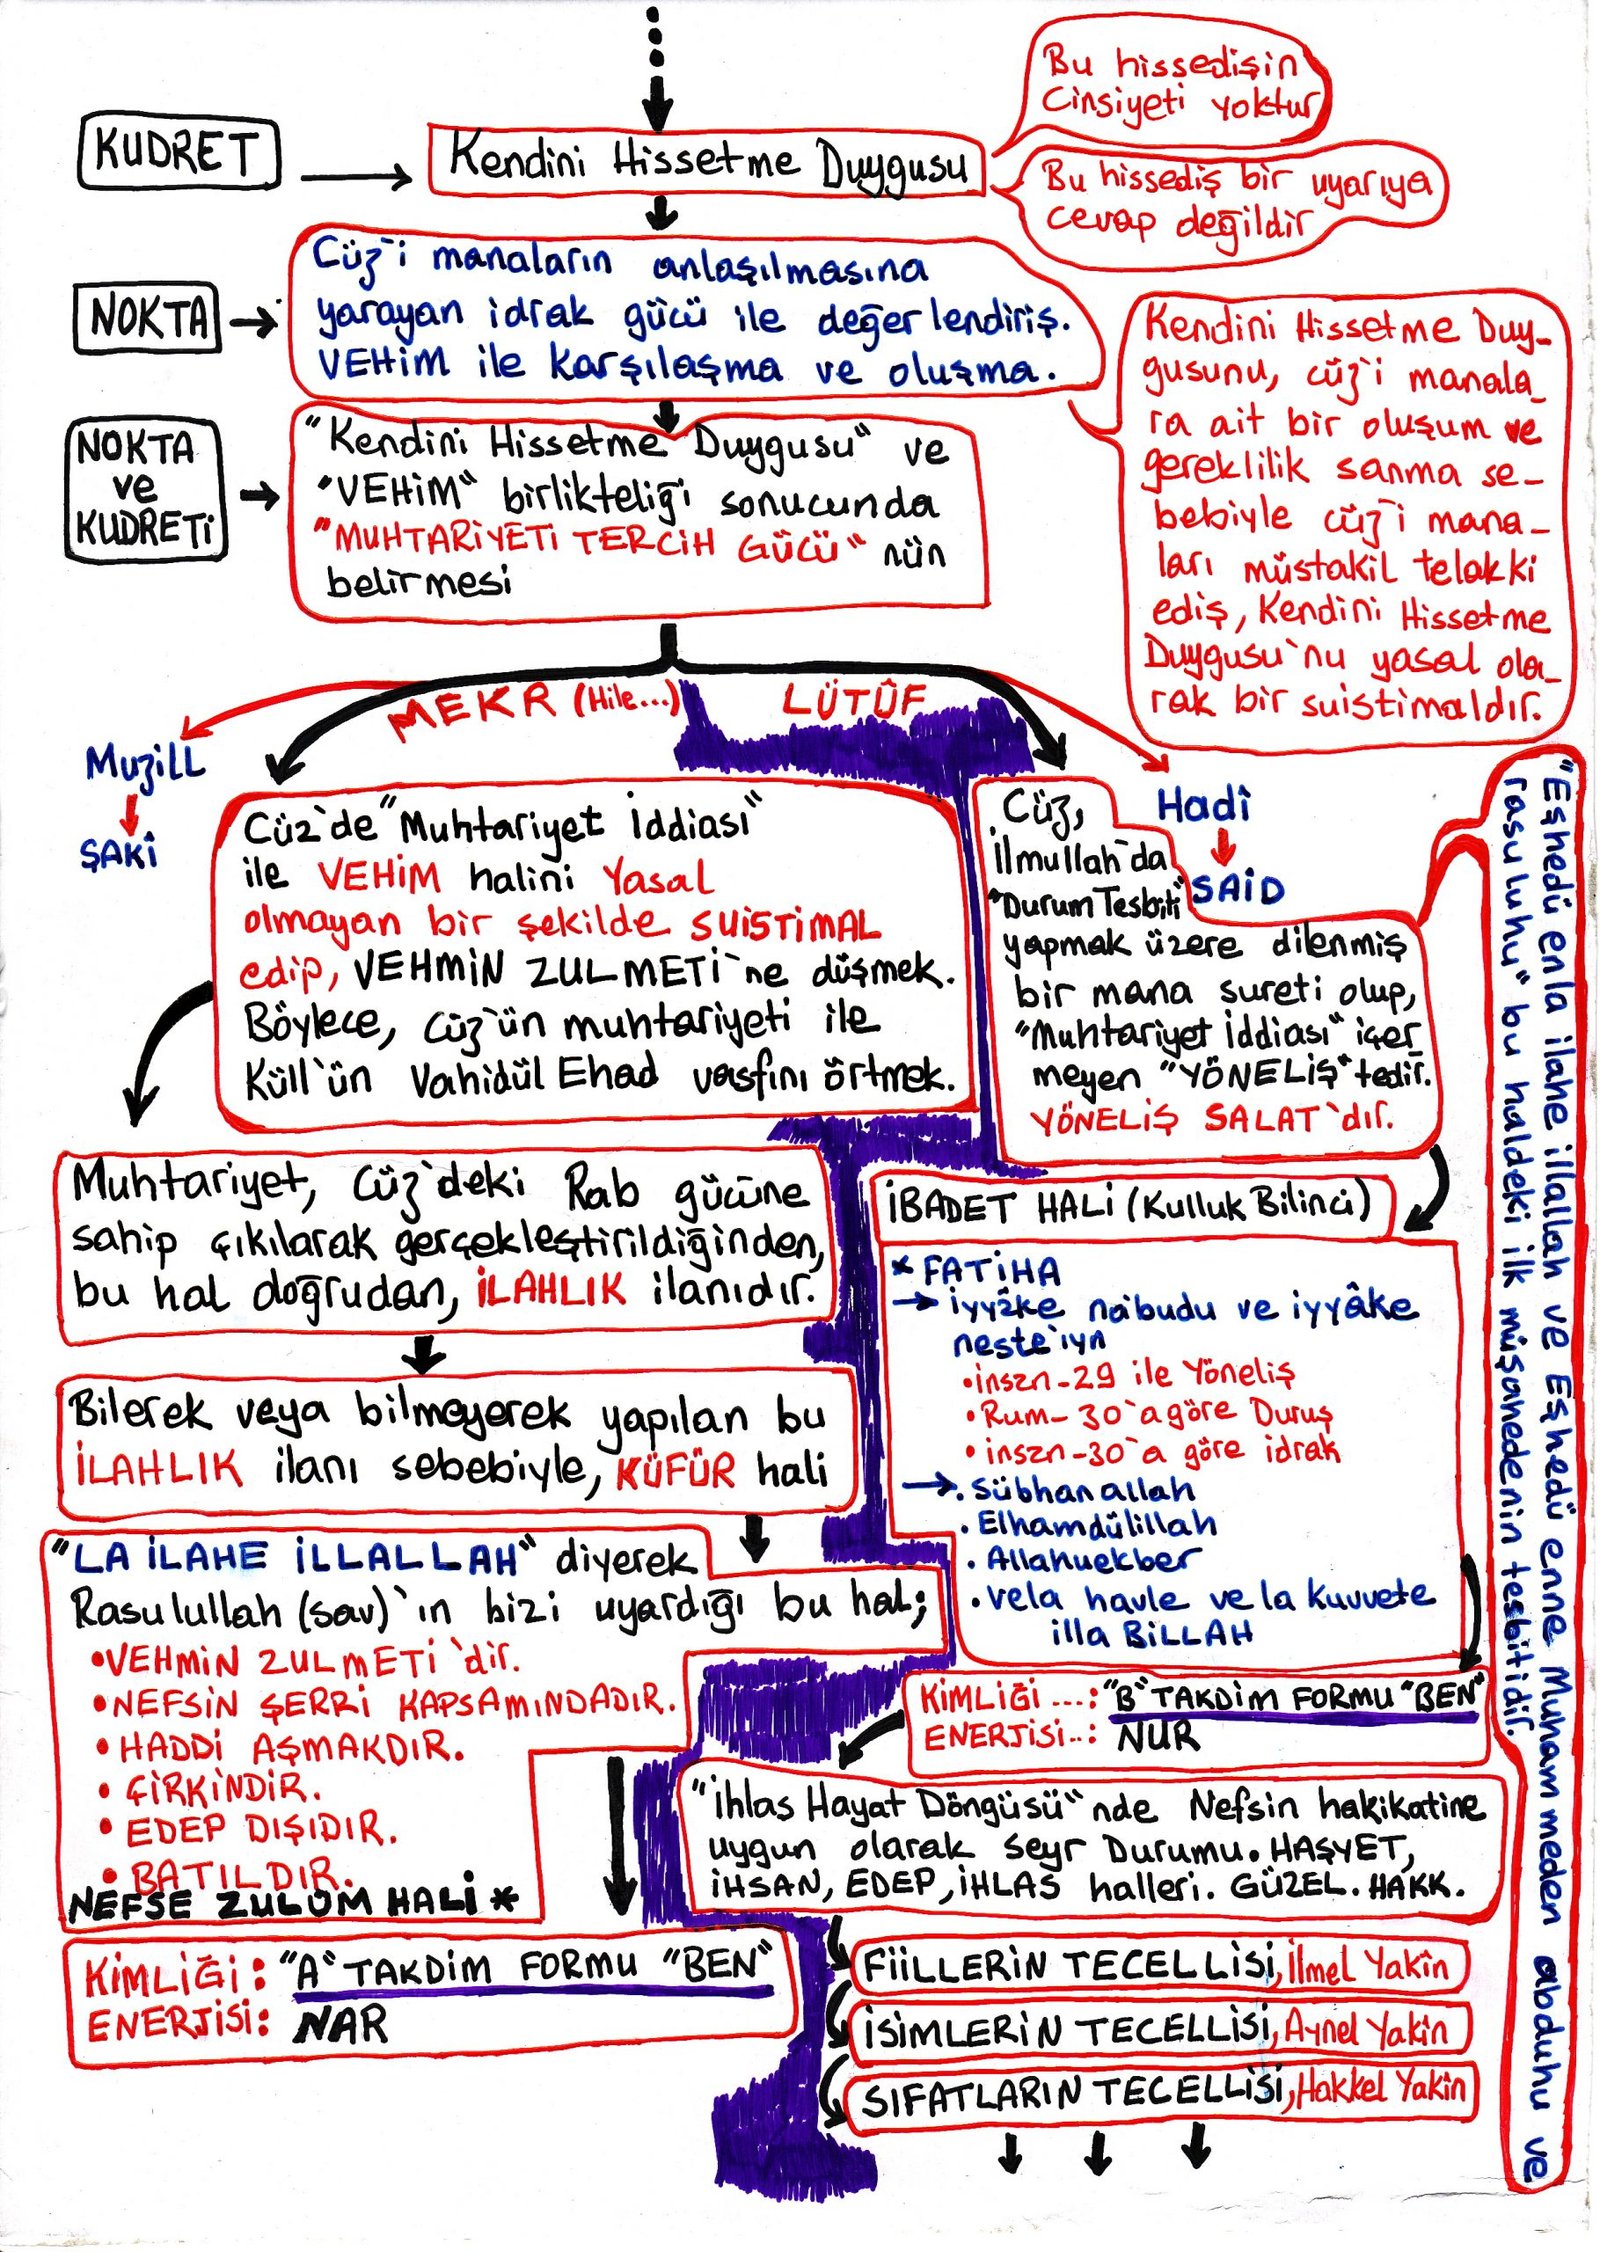 Bu hissedişin
Cinsiyeti yoktur
KUDRET
Kendini Hissetme Duygusu
Bu hissediş bir uyarıya
cevap değildir
NOKTA
Cüz`i manaların anlaşılmasına
yarayan idrak gücü ile değerlendiriş.
VEHİM ile karşılaşma ve oluşma.
Kendini Hissetme Duy-
gusunu, cüz`i manala-
ra ait bir oluşum ve
gereklilik sanma se-
bebiyle cüz`i mana-
ları müstakil telakki
ediş, Kendini Hissetme
Duygusu`nu yasal ola-
rak bir suistimaldır.
NOKTA
ve
KUDRETİ
"Kendini Hissetme Duygusu" ve
"VEHİM" birlikteliği sonucunda
"MUHTARİYETİ TERCİH GÜCÜ" nün
belirmesi
MEKR (Hile...)
LÜTÛF
Muzill
ŞAKİ
Hadî
SAİD
Cüz`de "Muhtariyet İddiası"
ile VEHİM halini Yasal
olmayan bir şekilde SUİSTİMAL
edip, VEHMİN ZULMETİ`ne düşmek.
Böylece, Cüz`ün muhtariyeti ile
Küll`ün Vahidül Ehad vasfını örtmek.
Cüz,
İlmullah`da
"Durum Tesbiti"
yapmak üzere dilenmiş
bir mana sureti olup,
"Muhtariyet İddiası" içer-
meyen "YÖNELİŞ" tedir.
YÖNELİŞ SALAT`dır.
"Eşhedü enla ilahe illallah ve Eşhedü enne Muhammeden abduhu ve
rasuluhu" bu haldeki ilk müşahedenin tesbitidir.
Muhtariyet, Cüz`deki Rab gücüne
sahip çıkılarak gerçekleştirildiğinden,
bu hal doğrudan, İLAHLIK ilanıdır.
Bilerek veya bilmeyerek yapılan bu
İLAHLIK ilanı sebebiyle, KÜFÜR hali
"LA İLAHE İLLALLAH" diyerek
Rasulullah (sav)`ın bizi uyardığı bu hal;
•VEHMİN ZULMETİ`dir.
•NEFSİN ŞERRİ KAPSAMINDADIR.
• HADDİ AŞMAKDIR.
• ÇİRKİNDİR.
• EDEP DIŞIDIR.
• BATILDIR.
NEFSE ZULÜM HALİ *
KİMLİĞİ: "A" TAKDİM FORMU "BEN"
ENERJİSİ: NAR
İBADET HALİ (Kulluk Bilinci)
* FATİHA
→ İyyâke na`budu ve iyyâke
neste`iyn
•insan-29 ile Yöneliş
•Rum-30`a göre Duruş
•insan-30`a göre idrak
→. Sübhanallah
. Elhamdülillah
. Allahuekber
. vela havle vela Kuvvete
illa BİLLAH
KİMLİĞİ ...: "B" TAKDİM FORMU "BEN"
ENERJİSİ..: NUR
"İhlas Hayat Döngüsü" nde Nefsin hakikatine
uygun olarak Seyr Durumu. HAŞYET,
İHSAN, EDEP, İHLAS halleri. GÜZEL. HAKK.
FİİLLERİN TECELLİSİ, İlmel Yakîn
İSİMLERİN TECELLİSİ, Aynel Yakîn
SIFATLARIN TECELLİSİ, Hakkel Yakîn